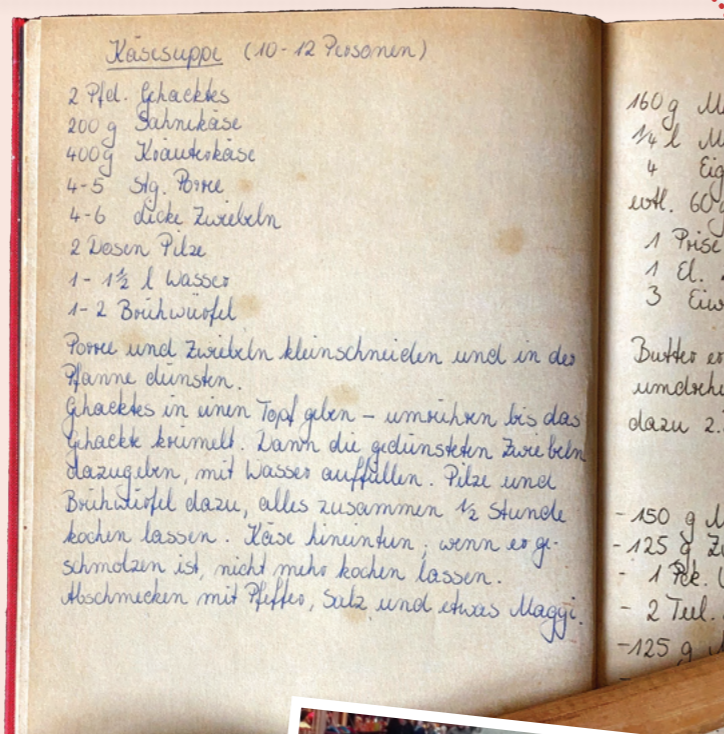 Käsesuppe (10-12 Personen)
2 Pfd. Gehacktes
200 g Sahnekäse
400 g Kräuterkäse
4-5 Stg. Porree
4-6 dicke Zwiebeln
2 Dosen Pilze
1- 1½ l Wasser
1-2 Brühwürfel
Porree und Zwiebeln kleinschneiden und in der
Pfanne dünsten.
Gehacktes in einen Topf geben – umrühren bis das
Gehackte krümelt. Dann die gedünsteten Zwiebeln
dazugeben, mit Wasser auffüllen. Pilze und
Brühwürfel dazu, alles zusammen ½ Stunde
kochen lassen. Käse hineintun, wenn er ge-
schmolzen ist, nicht mehr kochen lassen.
Abschmecken mit Pfeffer, Salz und etwas Maggi.
160 g
¼ l
4
evtl. 60
1 Prise
1 El.
3
Butter
dazu 2.
- 150 g
- 125 g
- 1 Pck.
- 2 Teel.
- 125 g